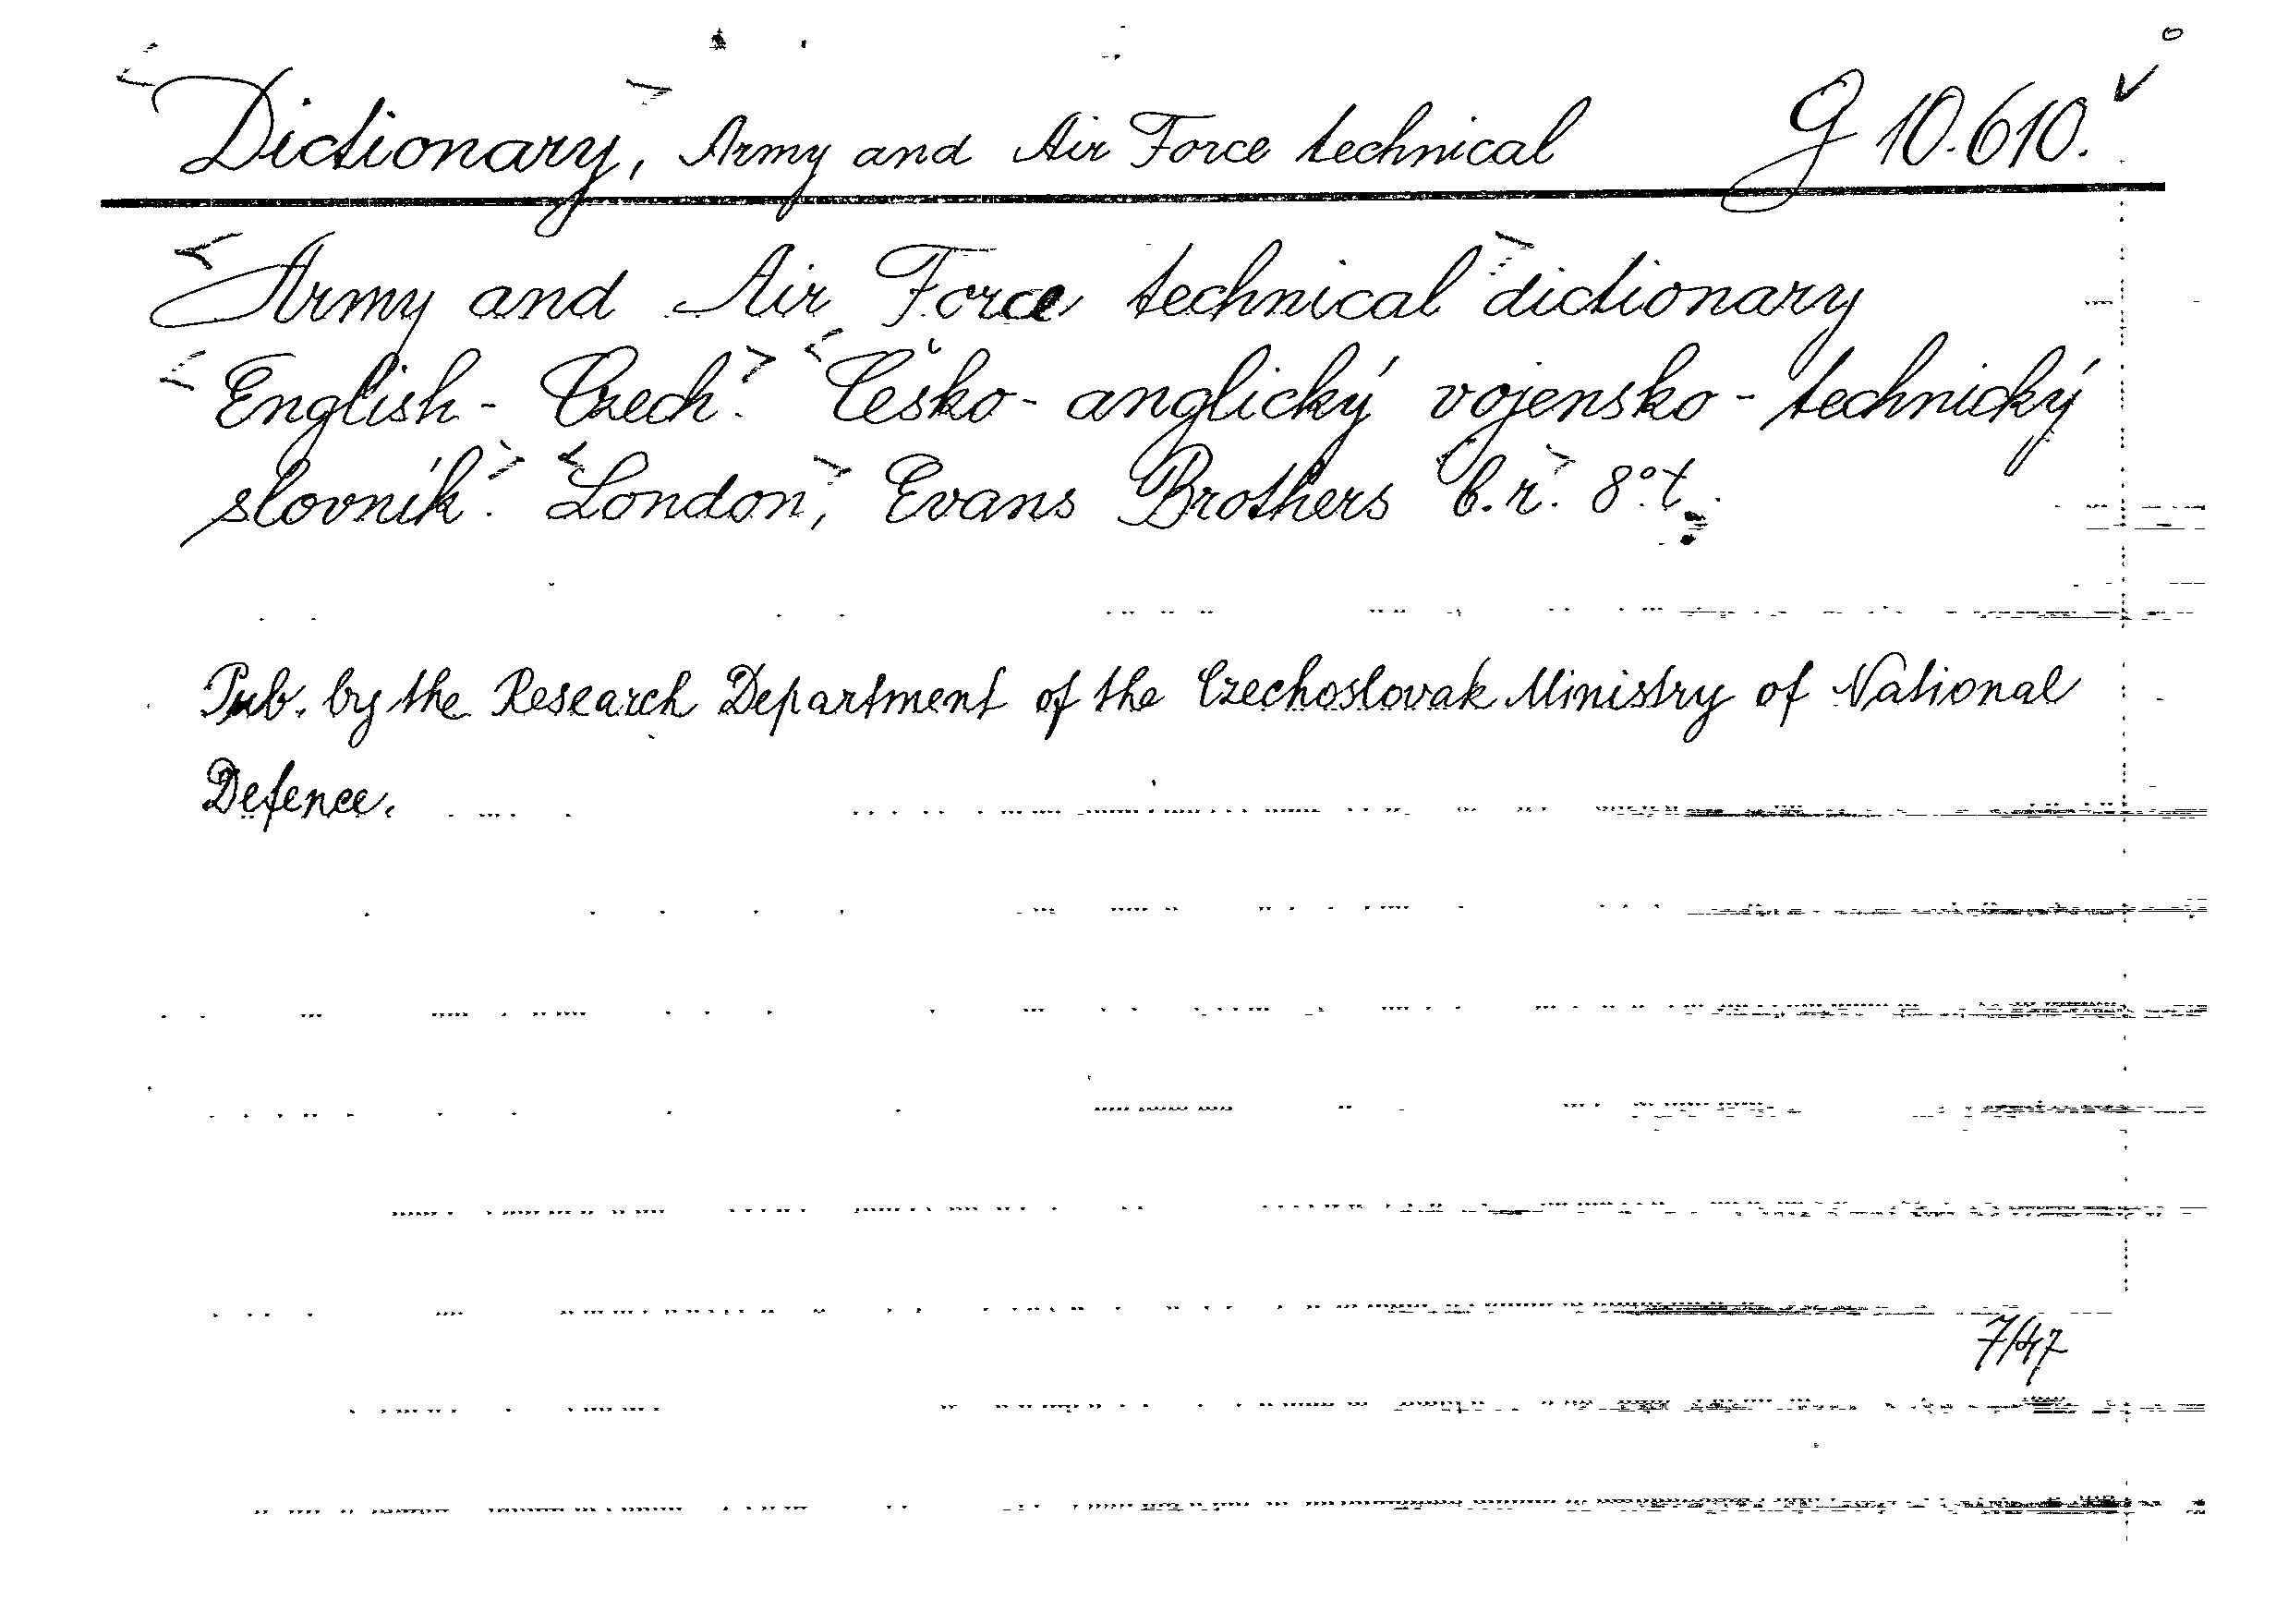 Dictionary, Army and Air Force technical G 10.610.
Army and Air Force technical dictionary
English - Czech. Česko - anglický vojensko - technický
slovník. London, Evans Brothers b.r. 8° t.
Pub. by the Research Department of the Czechoslovak Ministry of National
Defence.
7/47